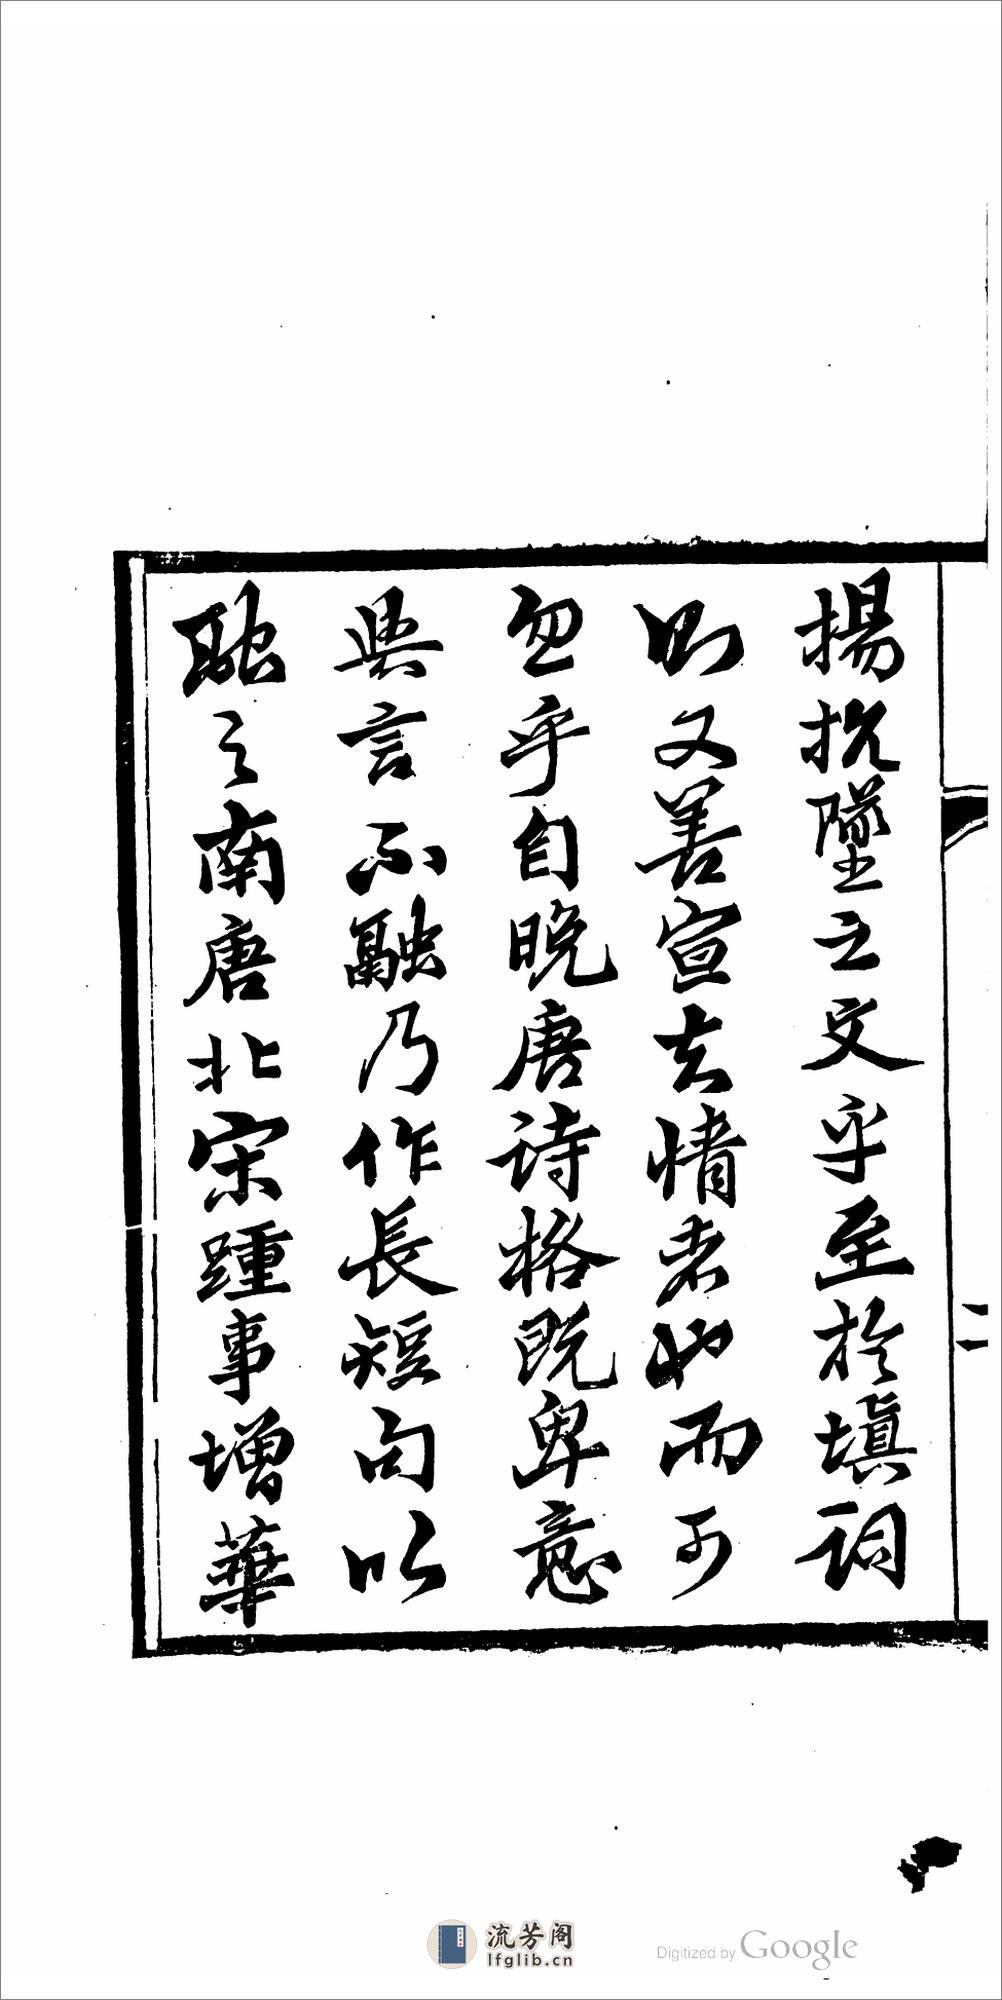 揚抗墜之文乎至於塡詞
則又善宣去情者也而可
忽乎自晚唐詩格既卑意
與言不融乃作長短句以
馳之南唐北宋踵事增華
二
流芳阁
lfglib.cn
Digitized by Google